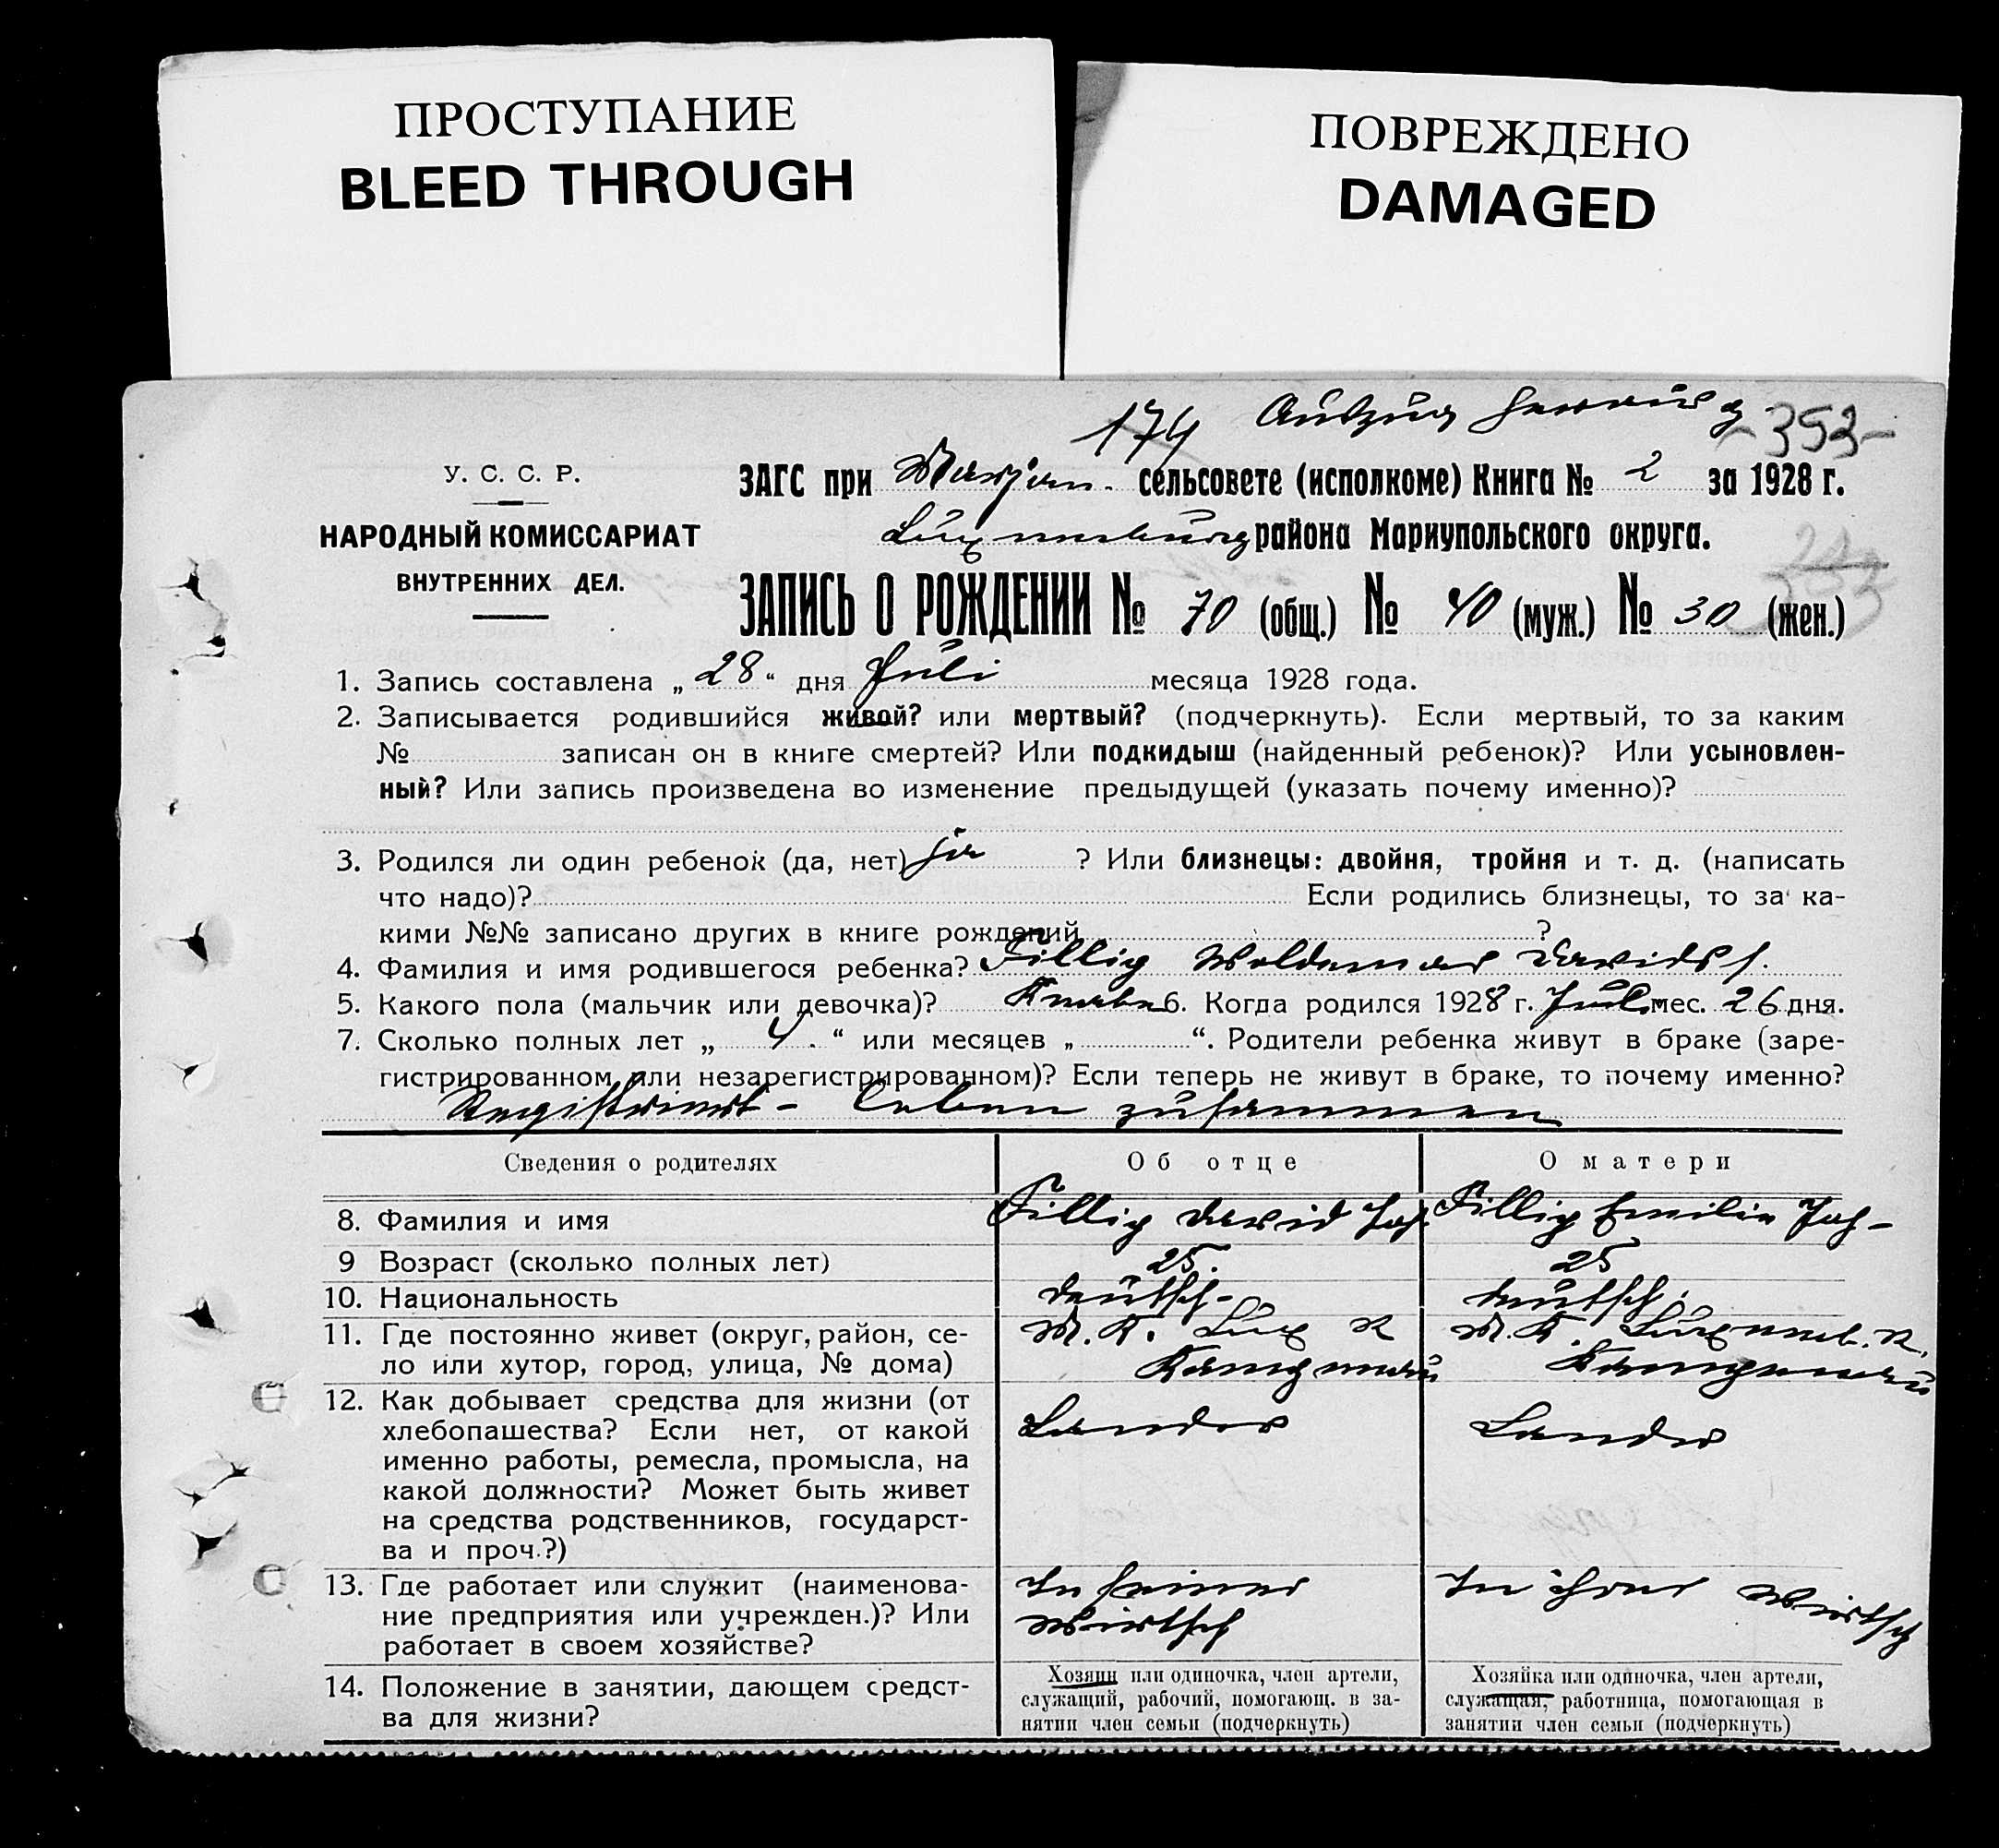 ПРОСТУПАНИЕ
BLEED THROUGH
ПОВРЕЖДЕНО
DAMAGED
174 Auszug
-353-
У. С. С. Р.
НАРОДНЫЙ КОМИССАРИАТ
ВНУТРЕННИХ ДЕЛ.
ЗАГС при Marjan. сельсовете (исполкоме) Книга № 2 за 1928 г.
Luxemburg района Мариупольского округа.
ЗАПИСЬ О РОЖДЕНИИ № 70 (общ.) № 40 (муж.) № 30 (жен.)
1. Запись составлена „ 28 “ дня Juli месяца 1928 года.
2. Записывается родившийся живой? или мертвый? (подчеркнуть). Если мертвый, то за каким
№ записан он в книге смертей? Или подкидыш (найденный ребенок)? Или усыновлен-
ный? Или запись произведена во изменение предыдущей (указать почему именно)?
3. Родился ли один ребенок (да, нет) ja ? Или близнецы: двойня, тройня и т. д. (написать
что надо)? Если родились близнецы, то за ка-
кими №№ записано других в книге рождений ?
4. Фамилия и имя родившегося ребенка? Fillig Woldemar Davids
5. Какого пола (мальчик или девочка)? Knabe 6. Когда родился 1928 г. Juli мес. 26 дня.
7. Сколько полных лет „ 4. “ или месяцев „ “. Родители ребенка живут в браке (заре-
гистрированном или незарегистрированном)? Если теперь не живут в браке, то почему именно?
Registriert - Leben zusammen
Сведения о родителях Об отце О матери
8. Фамилия и имя Fillig David Joh. Fillig Emilie Joh-
9 Возраст (сколько полных лет) 25. 25
10. Национальность deutsch- deutsch.
11. Где постоянно живет (округ, район, се- M. K. Lux R M. K. Luxemb. R.
ло или хутор, город, улица, № дома) Kampenau Kampenau
12. Как добывает средства для жизни (от
хлебопашества? Если нет, от какой
именно работы, ремесла, промысла, на
какой должности? Может быть живет
на средства родственников, государст-
ва и проч.?)
13. Где работает или служит (наименова- In seiner In ihrer Wirtsch
ние предприятия или учрежден.)? Или Wirtsch
работает в своем хозяйстве?
14. Положение в занятии, дающем средст-
ва для жизни?
Хозяин или одиночка, член артели,
служащий, рабочий, помогающ. в за-
нятии член семьи (подчеркнуть)
Хозяйка или одиночка, член артели,
служащая, работница, помогающая в
занятии член семьи (подчеркнуть)